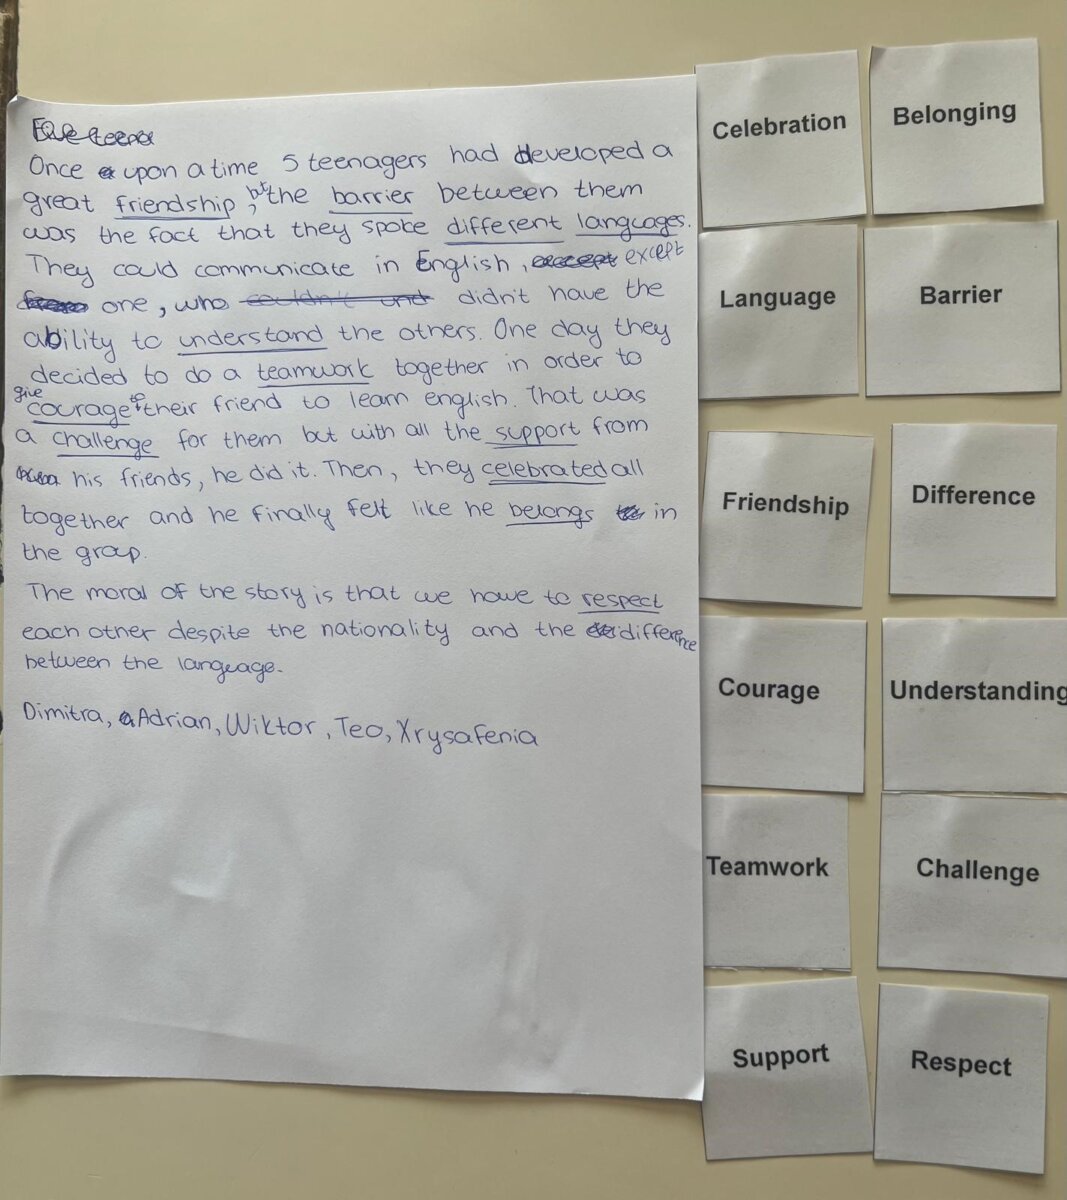 Five teena
Once upon a time 5 teenagers had developed a
great friendship, bt the barrier between them
was the fact that they spoke different languages.
They could communicate in English, except
one, who couldn't und didn't have the
ability to understand the others. One day they
decided to do a teamwork together in order to
give courage to their friend to learn english. That was
a challenge for them but with all the support from
his friends, he did it. Then, they celebrated all
together and he finally felt like he belongs in
the group.
The moral of the story is that we have to respect
each other despite the nationality and the difference
between the language.
Dimitra, Adrian, Wiktor, Teo, Xrysafenia
Celebration
Belonging
Language
Barrier
Friendship
Difference
Courage
Understanding
Teamwork
Challenge
Support
Respect